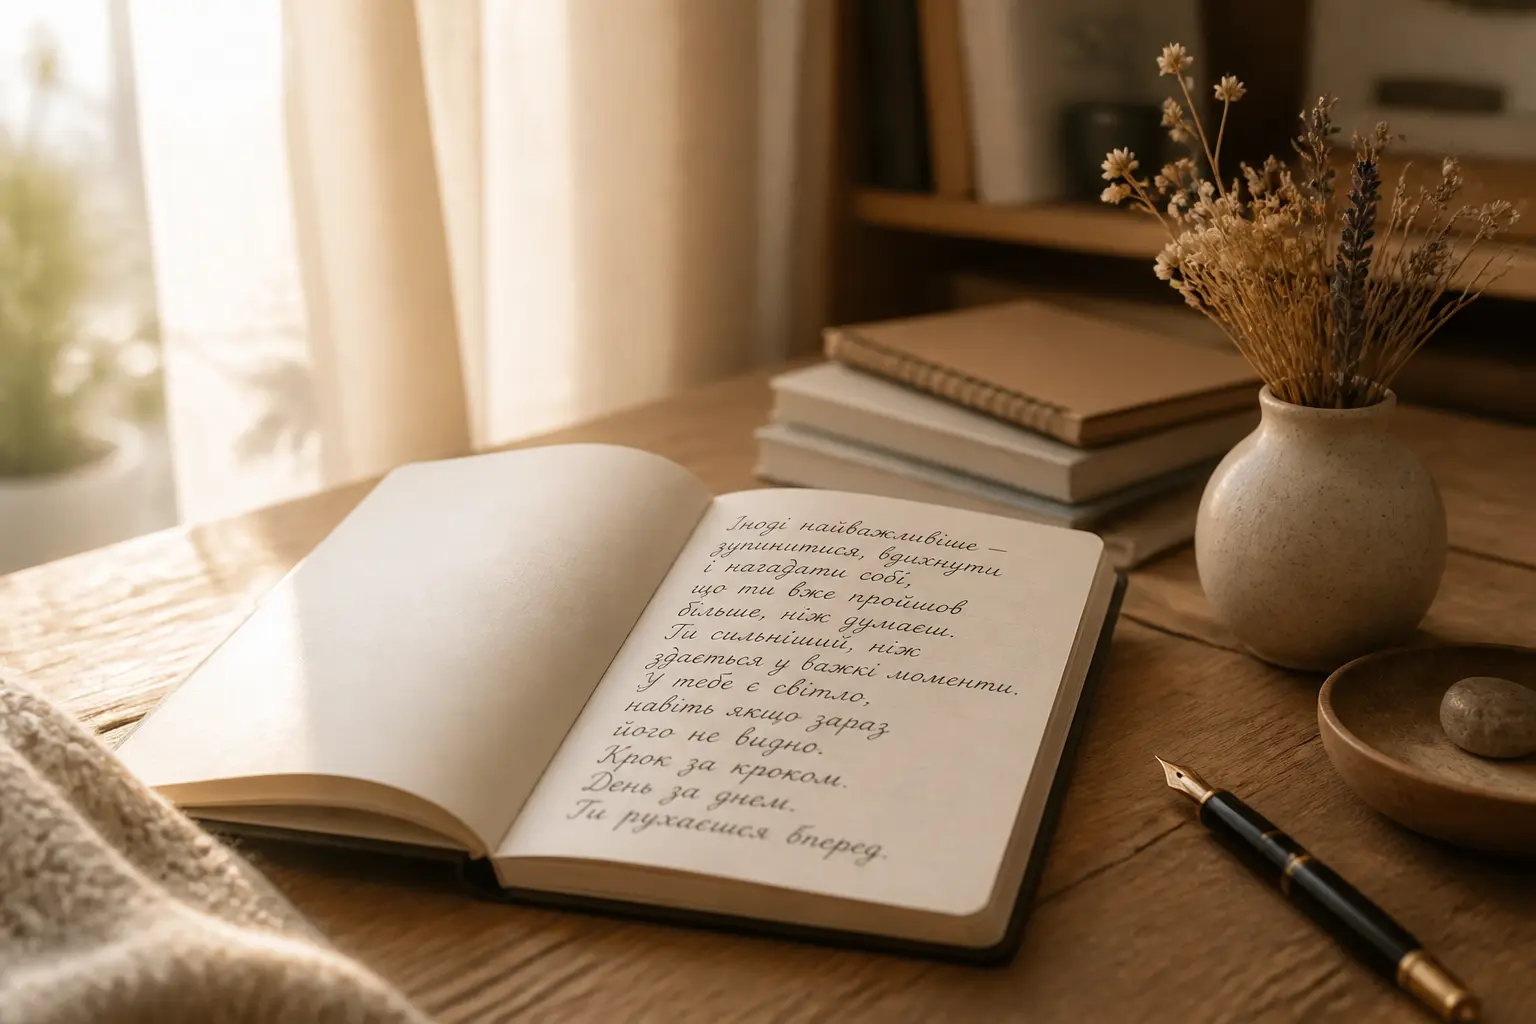 Іноді найважливіше —
зупинитися, вдихнути
і нагадати собі,
що ти вже пройшов
більше, ніж думаєш.
Ти сильніший, ніж
здається у важкі моменти.
У тебе є світло,
навіть якщо зараз
його не видно.
Крок за кроком.
День за днем.
Ти рухаєшся вперед.